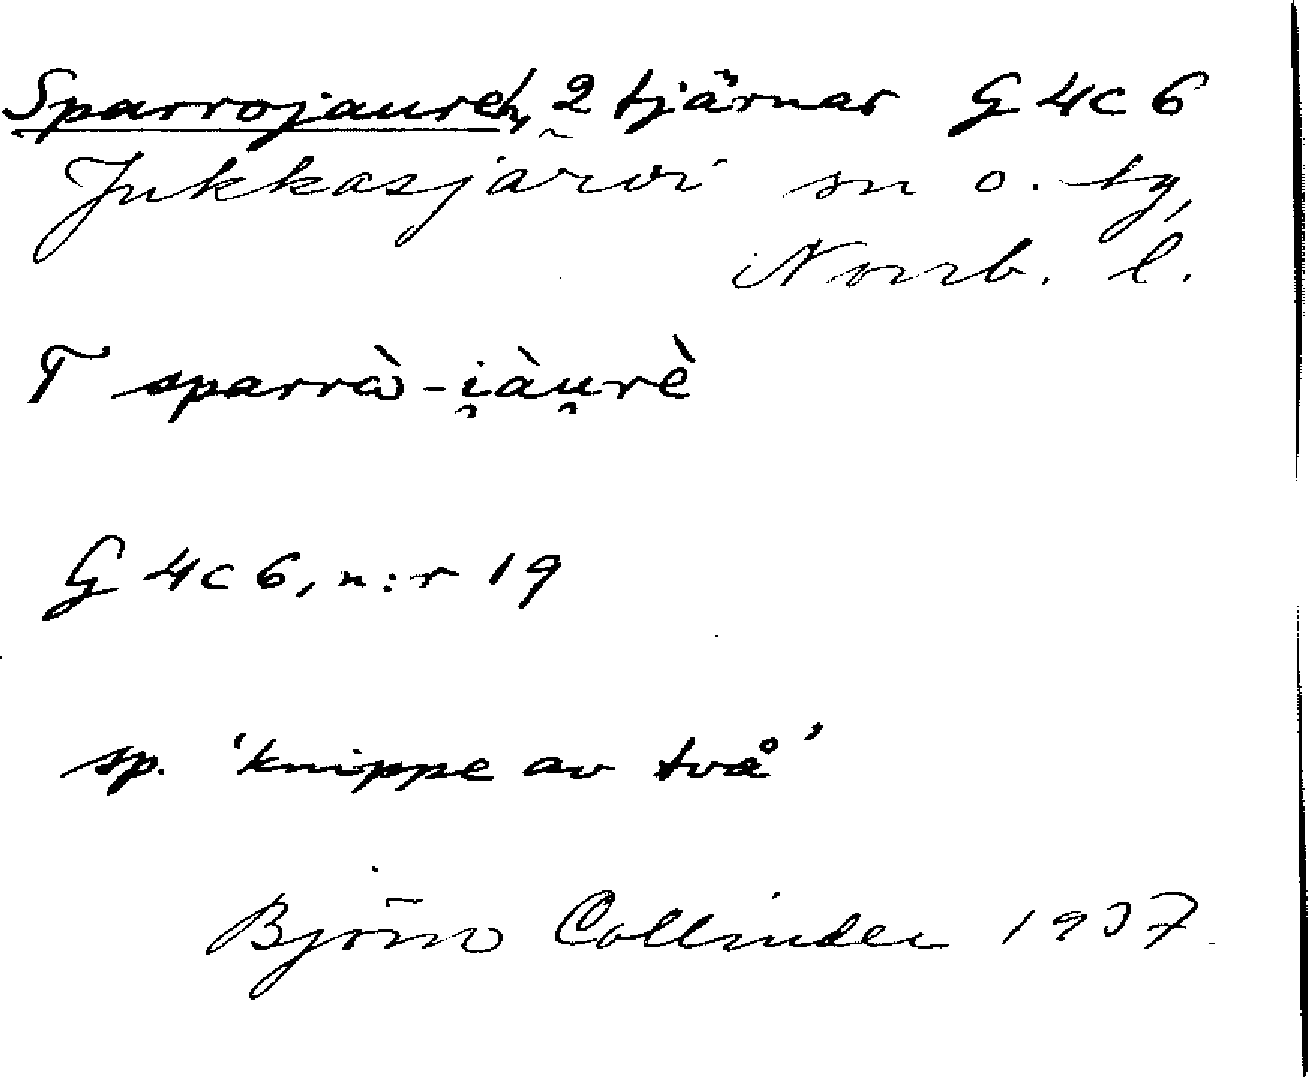 Sparrojaureh, 2 tjärnar G 4c 6
Jukkasjärvi sn o. tg,
Norrb. l.
T sparrὼ-i̯àu̯rè
G 4c 6, n:r 19
sp. 'knippe av två'
Björn Collinder 1937